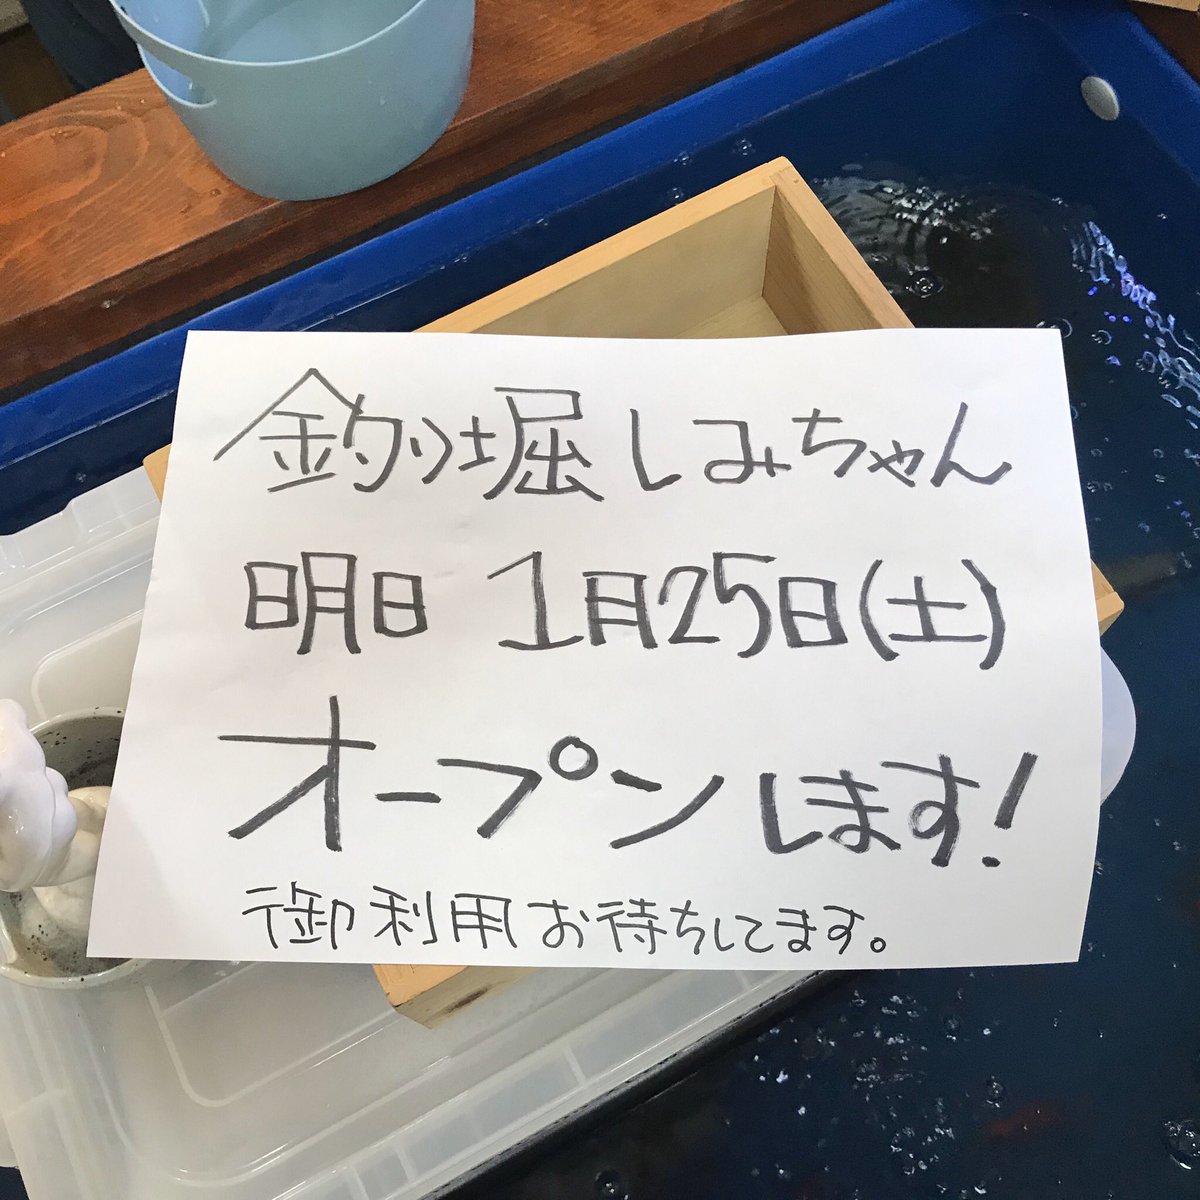 釣り堀しみちゃん
明日 1月25日(土)
オープンします!
御利用お待ちしてます。